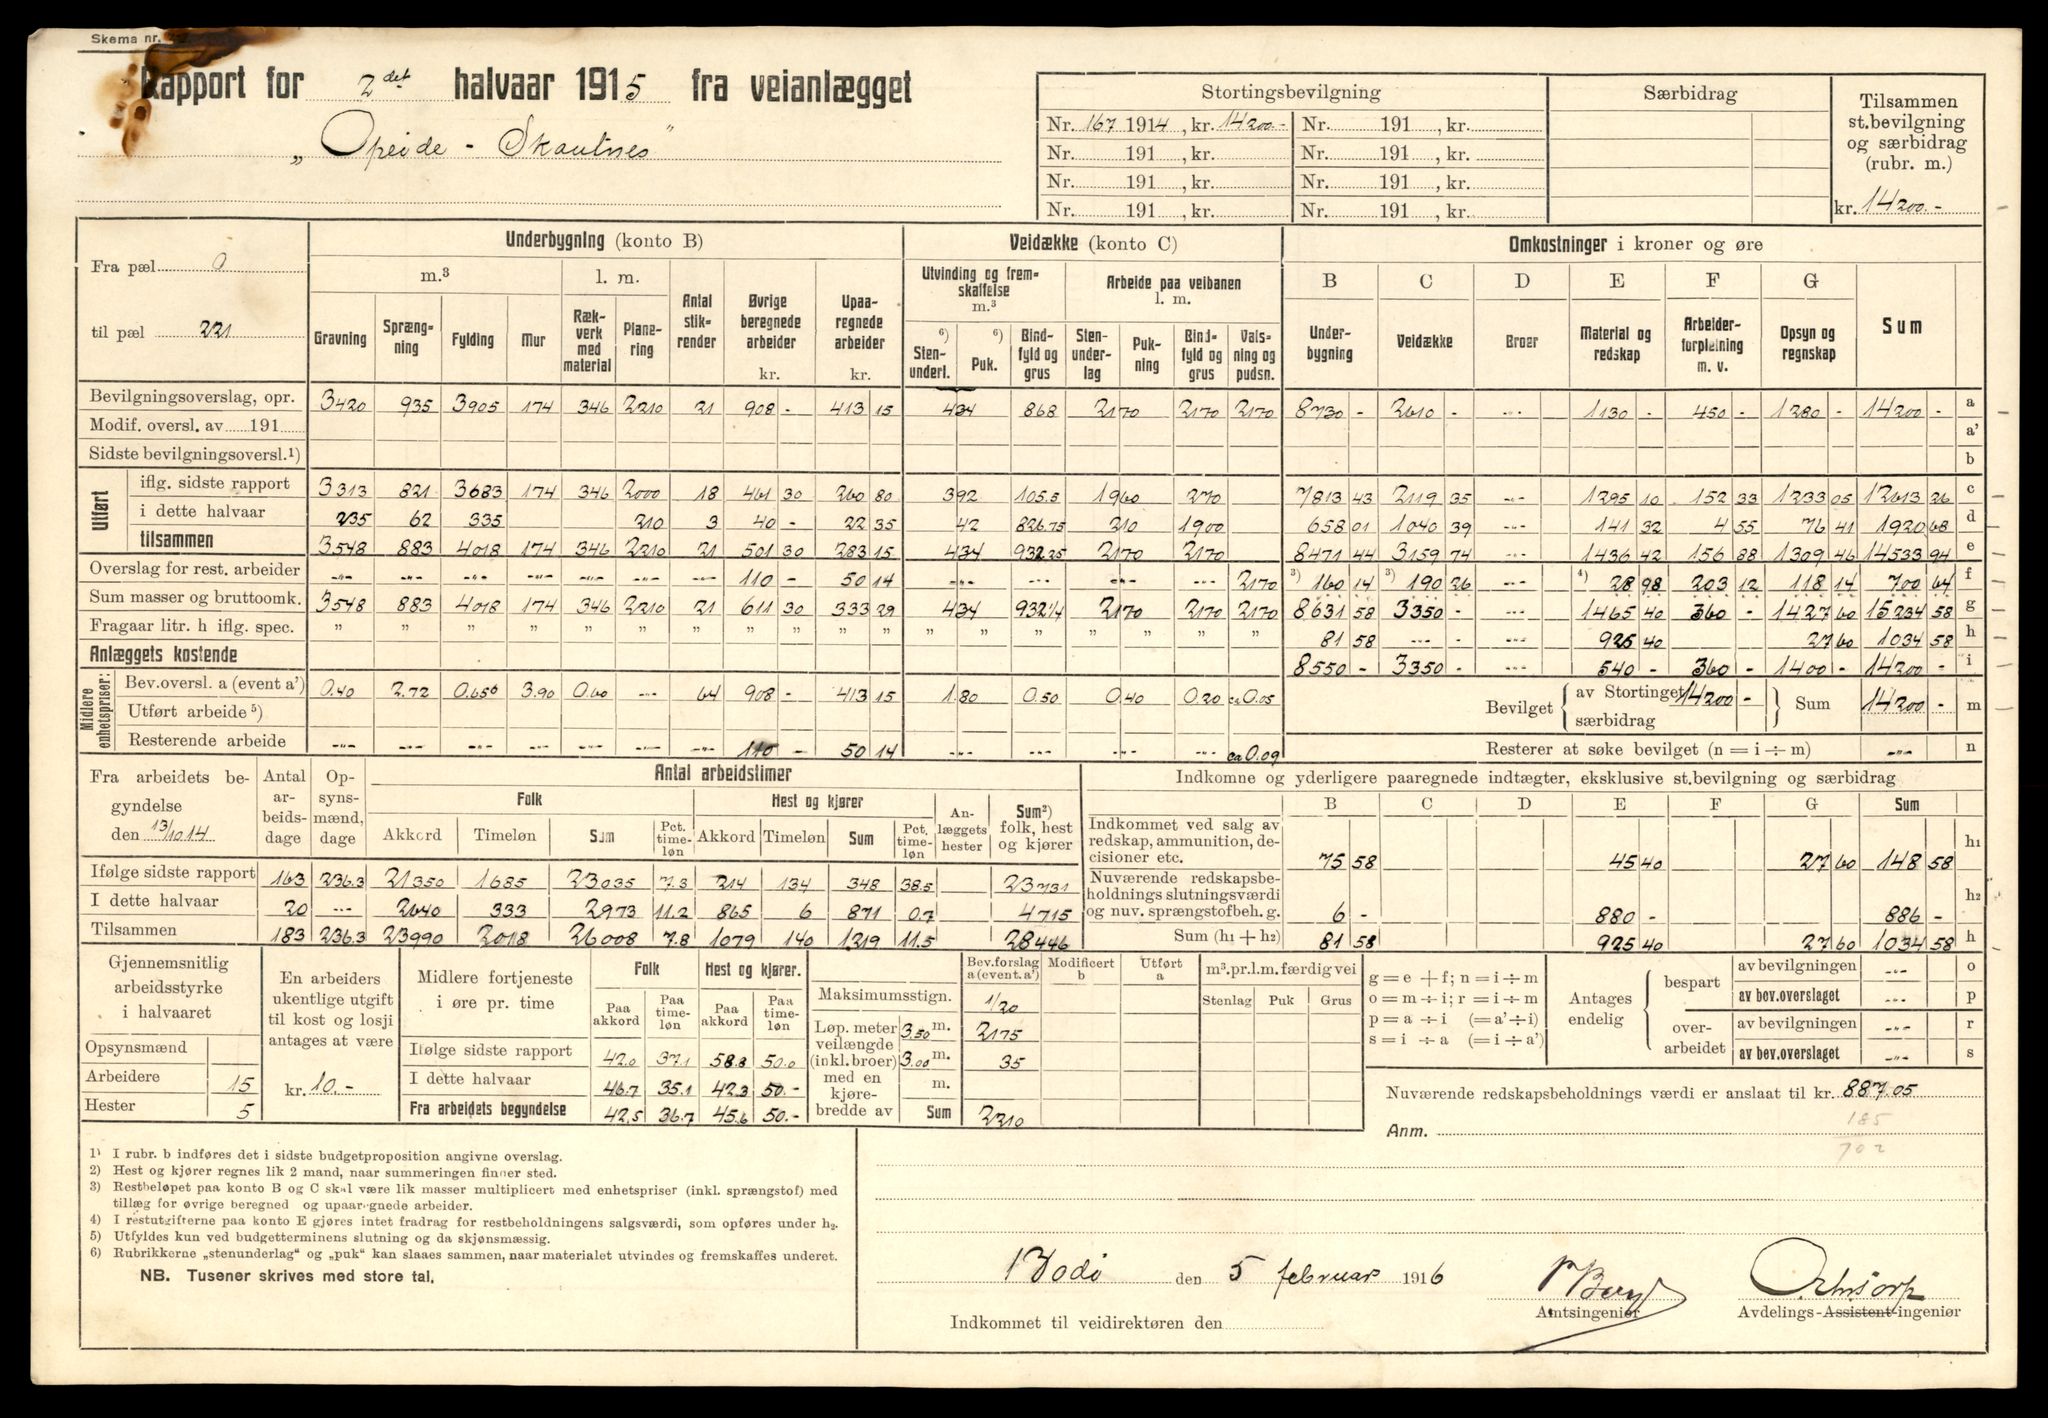 Skema nr.
Rapport for 2det halvaar 1915 fra veianlægget
„Opeide - Skautnes"
Stortingsbevilgning
Særbidrag
Tilsammen st.bevilgning og særbidrag (rubr. m.)
kr. 14200.-
Nr. 167 1914, kr. 14200.- Nr. 191 , kr.
Nr. 191 , kr. Nr. 191 , kr.
Nr. 191 , kr. Nr. 191 , kr.
Nr. 191 , kr. Nr. 191 , kr.
Fra pæl 0
til pæl 221
Underbygning (konto B) Veidække (konto C) Omkostninger i kroner og øre
m.³ l. m. Antal stikrender Øvrige beregnede arbeider kr. Upaaregnede arbeider kr.
Gravning Sprængning Fylding Mur Rækverk med material Planering
Utvinding og fremskaffelse m.³ Arbeide paa veibanen l. m.
6) Stenunderl. 6) Puk. Bindfyld og grus Stenunderlag Pukning Bindfyld og grus Valsning og pudsn.
B C D E F G Sum
Underbygning Veidække Broer Material og redskap Arbeiderforpleining m. v. Opsyn og regnskap
Bevilgningsoverslag, opr. 3420 935 3905 174 346 2210 21 908 - 413 15 434 868 2170 2170 2170 8730 - 2610 - -"- 1130 - 450 - 1280 - 14200 - a
Modif. oversl. av 191 a'
Sidste bevilgningsoversl.¹) b
Utført
iflg. sidste rapport 3313 821 3683 174 346 2000 18 461 30 260 80 392 105.5 1960 270 7813 43 2119 35 -"- 1295 10 152 33 1233 05 12613 26 c
i dette halvaar 235 62 335 210 3 40 - 22 35 42 826.75 210 1900 658 01 1040 39 -"- 141 32 4 55 76 41 1920 68 d
tilsammen 3548 883 4018 174 346 2210 21 501 30 283 15 434 932.25 2170 2170 8471 44 3159 74 -"- 1436 42 156 88 1309 46 14533 94 e
Overslag for rest. arbeider -"- -"- -"- -"- -"- -"- -"- 110 - 50 14 -"- -"- -"- -"- 2170 3) 160 14 3) 190 26 4) 28 98 203 12 118 14 700 64 f
Sum masser og bruttoomk. 3548 883 4018 174 346 2210 21 611 30 333 29 434 932 1/4 2170 2170 2170 8631 58 3350 - 1465 40 360 - 1427 60 15234 58 g
Fragaar litr. h iflg. spec. " " " " " " " " " " " " " " " " " " 81 58 -"- -"- 925 40 27 60 1034 58 h
Anlæggets kostende 8550 - 3350 - 540 - 360 - 1400 - 14200 - i
Midlere enhetspriser:
Bev.oversl. a (event a') 0.40 2.72 0.656 3.90 0.60 -"- 64 908 - 413 15 1.80 0.50 0.40 0.20 ca 0.05
Utført arbeide ⁵)
Resterende arbeide -"- -"- -"- -"- -"- -"- -"- 110 - 50 14 -"- -"- -"- -"- ca 0.09
Bevilget { av Stortinget 14200 - særbidrag } Sum 14200 - m
Resterer at søke bevilget (n = i ÷ m) -"- n
Fra arbeidets begyndelse den 13/10 14
Antal arbeidsdage
Opsynsmænd, dage
Antal arbeidstimer
Folk Hest og kjører Anlæggets hester Sum²) folk, hest og kjører
Akkord Timeløn Sum Pct. timeløn Akkord Timeløn Sum Pct. timeløn
Ifølge sidste rapport 163 236.3 21350 1685 23035 7.3 214 134 348 38.5 23731
I dette halvaar 20 -"- 2640 333 2973 11.2 865 6 871 0.7 4715
Tilsammen 183 236.3 23990 2018 26008 7.8 1079 140 1219 11.5 28446
Indkomne og yderligere paaregnede indtægter, eksklusive st.bevilgning og særbidrag
B C D E F G Sum
Indkommet ved salg av redskap, ammunition, decisioner etc. 75 58 45 40 27 60 148 58 h1
Nuværende redskapsbeholdnings slutningsværdi og nuv. sprængstofbeh. g. 6 - 880 - 886 - h2
Sum (h1 + h2) 81 58 925 40 27 60 1034 58 h
Gjennemsnitlig arbeidsstyrke i halvaaret
Opsynsmænd
Arbeidere 15
Hester 5
En arbeiders ukentlige utgift til kost og losji antages at være
kr. 10.-
Midlere fortjeneste i øre pr. time
Folk Hest og kjører.
Paa akkord Paa timeløn Paa akkord Paa timeløn
Ifølge sidste rapport 42.0 37.1 58.3 50.0
I dette halvaar 46.7 35.1 42.3 50.-
Fra arbeidets begyndelse 42.5 36.7 45.6 50.-
Bev.forslag a (event. a') Modificert b Utført a
Maksimumsstign. 1/20
Løp. meter veilængde (inkl. broer) med en kjørebredde av
3.50 m. 2175
3.00 m. 35
m.
Sum 2210
m³. pr. l. m. færdig vei
Stenlag Puk Grus
g = e + f; n = i ÷ m
o = m ÷ i; r = i ÷ m
p = a ÷ i (= a' ÷ i)
s = i ÷ a (= i ÷ a')
Antages endelig
bespart av bevilgningen -"- o
av bev.overslaget -"- p
overarbeidet av bevilgningen -"- r
av bev.overslaget -"- s
Nuværende redskapsbeholdnings værdi er anslaat til kr. 887.05
185
702
Anm.
1) I rubr. b indføres det i sidste budgetproposition angivne overslag.
2) Hest og kjører regnes lik 2 mand, naar summeringen finder sted.
3) Restbeløpet paa konto B og C skal være lik masser multiplicert med enhetspriser (inkl. sprængstof) med
tillæg for øvrige beregned og upaaregnede arbeider.
4) I restutgifterne paa konto E gjøres intet fradrag for restbeholdningens salgsværdi, som opføres under h₂.
5) Utfyldes kun ved budgetterminens slutning og da skjønsmæssig.
6) Rubrikkerne „stenunderlag" og „puk" kan slaaes sammen, naar materialet utvindes og fremskaffes underet.
NB. Tusener skrives med store tal.
Bodø den 5 februar 1916
Indkommet til veidirektøren den
Amtsingeniør
Avdelings-Assistent-ingeniør